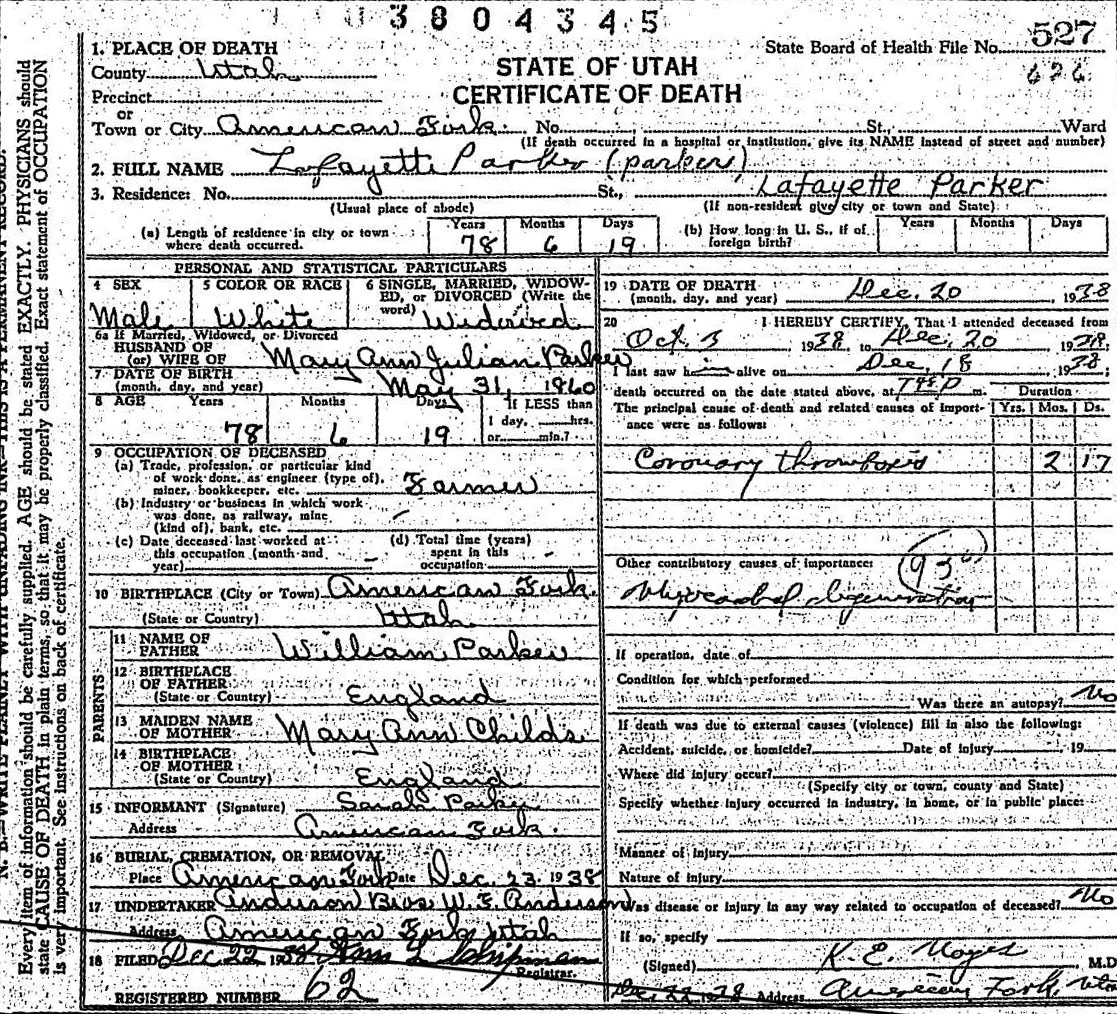 3804345
1. PLACE OF DEATH
County Utah
Precinct
or
Town or City American Fork. No. St., Ward
(If death occurred in a hospital or institution, give its NAME instead of street and number)
State Board of Health File No. 527
626
STATE OF UTAH
CERTIFICATE OF DEATH
2. FULL NAME Lafayette Parker (parker)
3. Residence: No. St., Lafayette Parker
(Usual place of abode) (If non-resident give city or town and State)
(a) Length of residence in city or town where death occurred. Years 78 Months 6 Days 19
(b) How long in U. S., if of foreign birth? Years Months Days
PERSONAL AND STATISTICAL PARTICULARS
4 SEX Male
5 COLOR OR RACE White
6 SINGLE, MARRIED, WIDOWED, or DIVORCED (Write the word) Widowed
6a If Married, Widowed, or Divorced
HUSBAND OF
(or) WIFE OF Mary Ann Julian Parker
7 DATE OF BIRTH
(month, day, and year) May 31, 1860
8 AGE Years 78 Months 6 Days 19 If LESS than 1 day, hrs. or min.?
9 OCCUPATION OF DECEASED
(a) Trade, profession, or particular kind
of work done, as engineer (type of),
miner, bookkeeper, etc. Farmer
(b) Industry or business in which work
was done, as railway, mine
(kind of), bank, etc.
(c) Date deceased last worked at
this occupation (month and
year) -
(d) Total time (years)
spent in this
occupation -
10 BIRTHPLACE (City or Town) American Fork.
(State or Country) Utah
PARENTS
11 NAME OF
FATHER William Parker
12 BIRTHPLACE
OF FATHER
(State or Country) England
13 MAIDEN NAME
OF MOTHER Mary Ann Childs
14 BIRTHPLACE
OF MOTHER
(State or Country) England
15 INFORMANT (Signature) Sarah Parker
Address American Fork.
16 BURIAL, CREMATION, OR REMOVAL
Place American Fork Date Dec. 23. 1938
17 UNDERTAKER Anderson Bros. W. E. Anderson
Address American Fork Utah
18 FILED Dec 22, 1938 Chipman
Registrar.
REGISTERED NUMBER 62
19 DATE OF DEATH
(month, day, and year) Dec. 20, 1938
20 I HEREBY CERTIFY, That I attended deceased from
Oct. 3 1938, to Dec. 20 1938.
I last saw him alive on Dec. 18, 1938;
death occurred on the date stated above, at m.
Duration
The principal cause of death and related causes of import- Yrs. Mos. Ds.
ance were as follows:
Coronary thrombosis 2 17
Other contributory causes of importance:
Myocardial degeneration
If operation, date of
Condition for which performed
Was there an autopsy? No
If death was due to external causes (violence) fill in also the following:
Accident, suicide, or homicide? Date of injury 19
Where did injury occur?
(Specify city or town, county and State)
Specify whether injury occurred in industry, in home, or in public place:
Manner of injury
Nature of injury
Was disease or injury in any way related to occupation of deceased? No
If so, specify
(Signed) K. E. Noyes M.D
Dec. 22 1938 Address American Fork, Utah
N. B.—WRITE PLAINLY WITH UNFADING INK—THIS IS A PERMANENT RECORD.
Every item of information should be carefully supplied. AGE should be stated EXACTLY. PHYSICIANS should
state CAUSE OF DEATH in plain terms, so that it may be properly classified. Exact statement of OCCUPATION
is very important. See instructions on back of certificate.